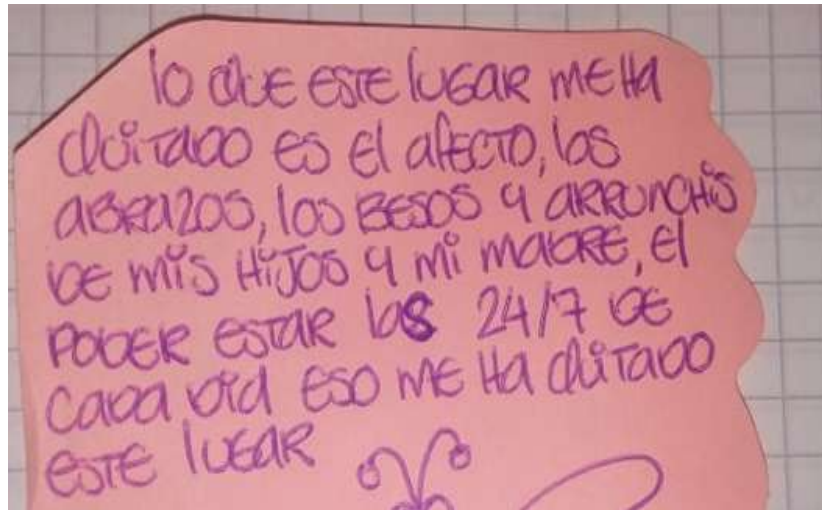 lo que este lugar me ha
quitado es el afecto, los
abrazos, los besos y arrunchis
de mis hijos y mi madre, el
poder estar las 24/7 de
cada día eso me ha quitado
este lugar